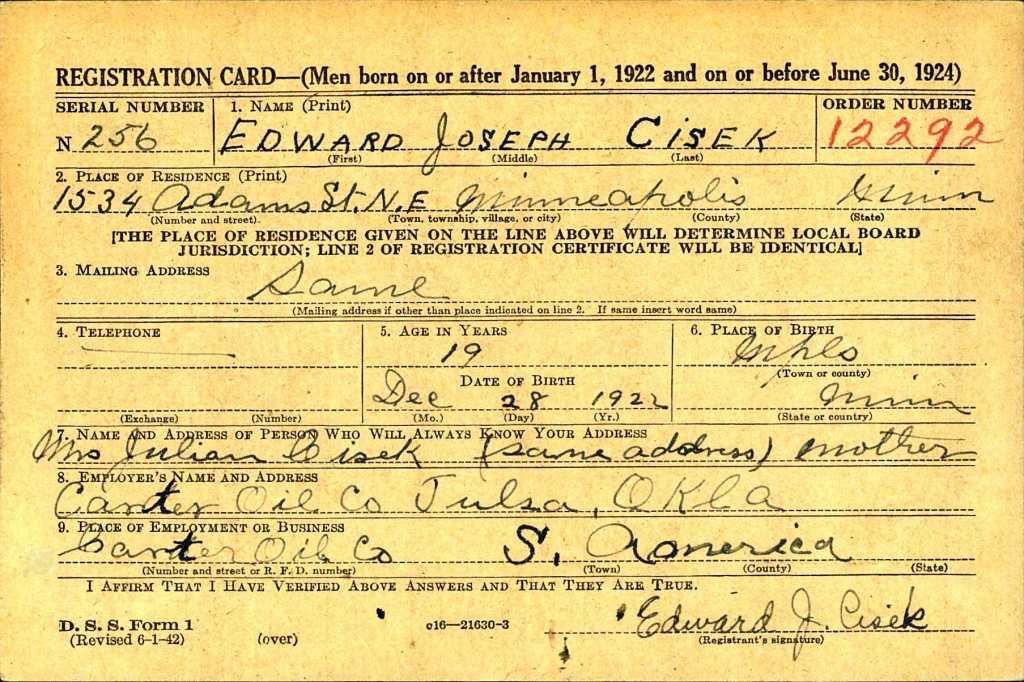 REGISTRATION CARD—(Men born on or after January 1, 1922 and on or before June 30, 1924)
SERIAL NUMBER 1. NAME (Print) ORDER NUMBER
N 256 EDWARD JOSEPH CISEK 12292
(First) (Middle) (Last)
2. PLACE OF RESIDENCE (Print)
1534 Adams St. N.E Minneapolis Minn
(Number and street). (Town, township, village, or city) (County) (State)
[THE PLACE OF RESIDENCE GIVEN ON THE LINE ABOVE WILL DETERMINE LOCAL BOARD
JURISDICTION; LINE 2 OF REGISTRATION CERTIFICATE WILL BE IDENTICAL]
3. MAILING ADDRESS
Same
(Mailing address if other than place indicated on line 2. If same insert word same)
4. TELEPHONE 5. AGE IN YEARS 6. PLACE OF BIRTH
19 Mpls
(Town or county)
DATE OF BIRTH
Dec 28 1922 Minn
(Exchange) (Number) (Mo.) (Day) (Yr.) (State or country)
7. NAME AND ADDRESS OF PERSON WHO WILL ALWAYS KNOW YOUR ADDRESS
Mrs Julian Cisek (same address) mother
8. EMPLOYER'S NAME AND ADDRESS
Carter Oil Co Tulsa, OKla
9. PLACE OF EMPLOYMENT OR BUSINESS
Carter Oil Co S. America
(Number and street or R. F. D. number) (Town) (County) (State)
I AFFIRM THAT I HAVE VERIFIED ABOVE ANSWERS AND THAT THEY ARE TRUE.
D. S. S. Form 1
(Revised 6-1-42) (over) c16—21630-3 Edward J. Cisek
(Registrant's signature)